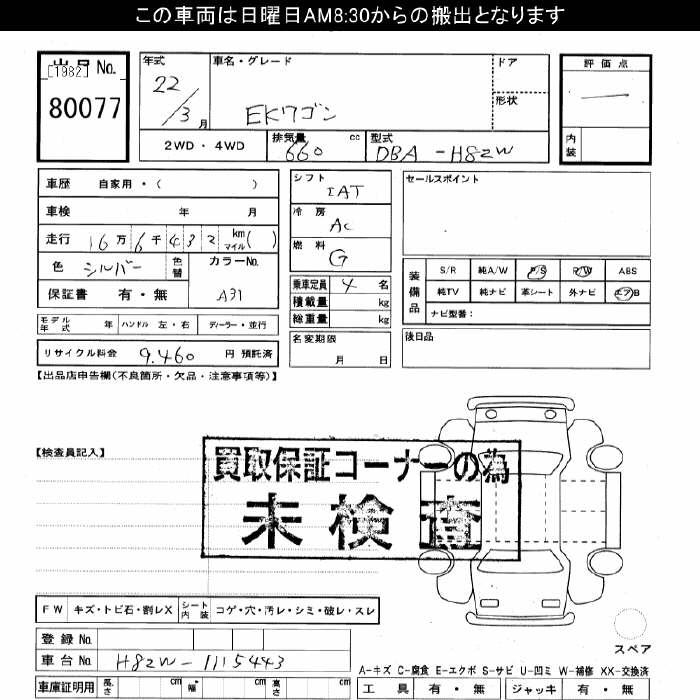 この車両は日曜日AM8:30からの搬出となります
出品 No.
[1982]
80077
年式
22/3月
車名・グレード
EKワゴン
ドア
形状
2WD・4WD
排気量
660 cc
型式
DBA-H82W
評価点
—
内装
車歴 自家用・( )
車検 年 月
走行 16万6千432 km マイル( )
色 シルバー 色替
カラーNo.
A31
保証書 有・無
モデル年式 年 ハンドル 左・右 ディーラー・並行
リサイクル料金 9,460 円 預託済
シフト
IAT
冷房
AC
燃料
G
乗車定員 4 名
積載量 kg
総重量 kg
名変期限
月 日
セールスポイント
装備品
S/R 純A/W P/S P/W ABS
純TV 純ナビ 革シート 外ナビ エアB
ナビ型番:
後日品
【出品店申告欄(不良箇所・欠品・注意事項等)】
【検査員記入】
買取保証コーナーの為
未検査
FW キズ・トビ石・割レX シート内装 コゲ・穴・汚レ・シミ・破レ・スレ
登録No.
車台No. H82W-1115443
車庫証明用 長さ cm 幅 cm 高さ cm
スペア
A-キズ C-腐食 E-エクボ S-サビ U-凹ミ W-補修 XX-交換済
工具 有・無 ジャッキ 有・無